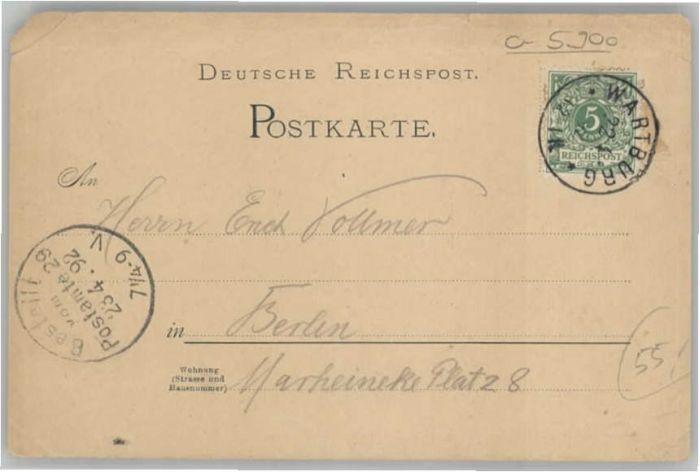 5,900
DEUTSCHE REICHSPOST.
POSTKARTE.
WARTBURG
5
REICHSPOST
An
Herrn Erich Vollmer
Bestellt
vom
Postamte 29
23 4. 92
7¼-9 V.
in Berlin
Wohnung
(Strasse und
Hausnummer)
Marheineke Platz 8
55